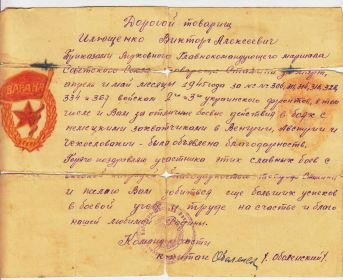 Дорогой товарищ
Илющенко Виктор Алексеевич
Приказами Верховного Главнокомандующего маршала
Советского Союза товарища Сталина за март,
апрель и май месяцы 1945 года за №№ 306,
334 и 369 войскам 2го и 3го украинского фронтов, в том
числе и Вам за отличные боевые действия в боях с
немецкими захватчиками в Венгрии, Австрии и
Чехословакии - была объявлена благодарность.
Горячо поздравляю участника этих славных боев с
и желаю Вам добиться еще больших успехов
в боевой и труде на счастье и благо
нашей любимой Родины.
Командир части
капитан Оболенский
ГВАРДИЯ